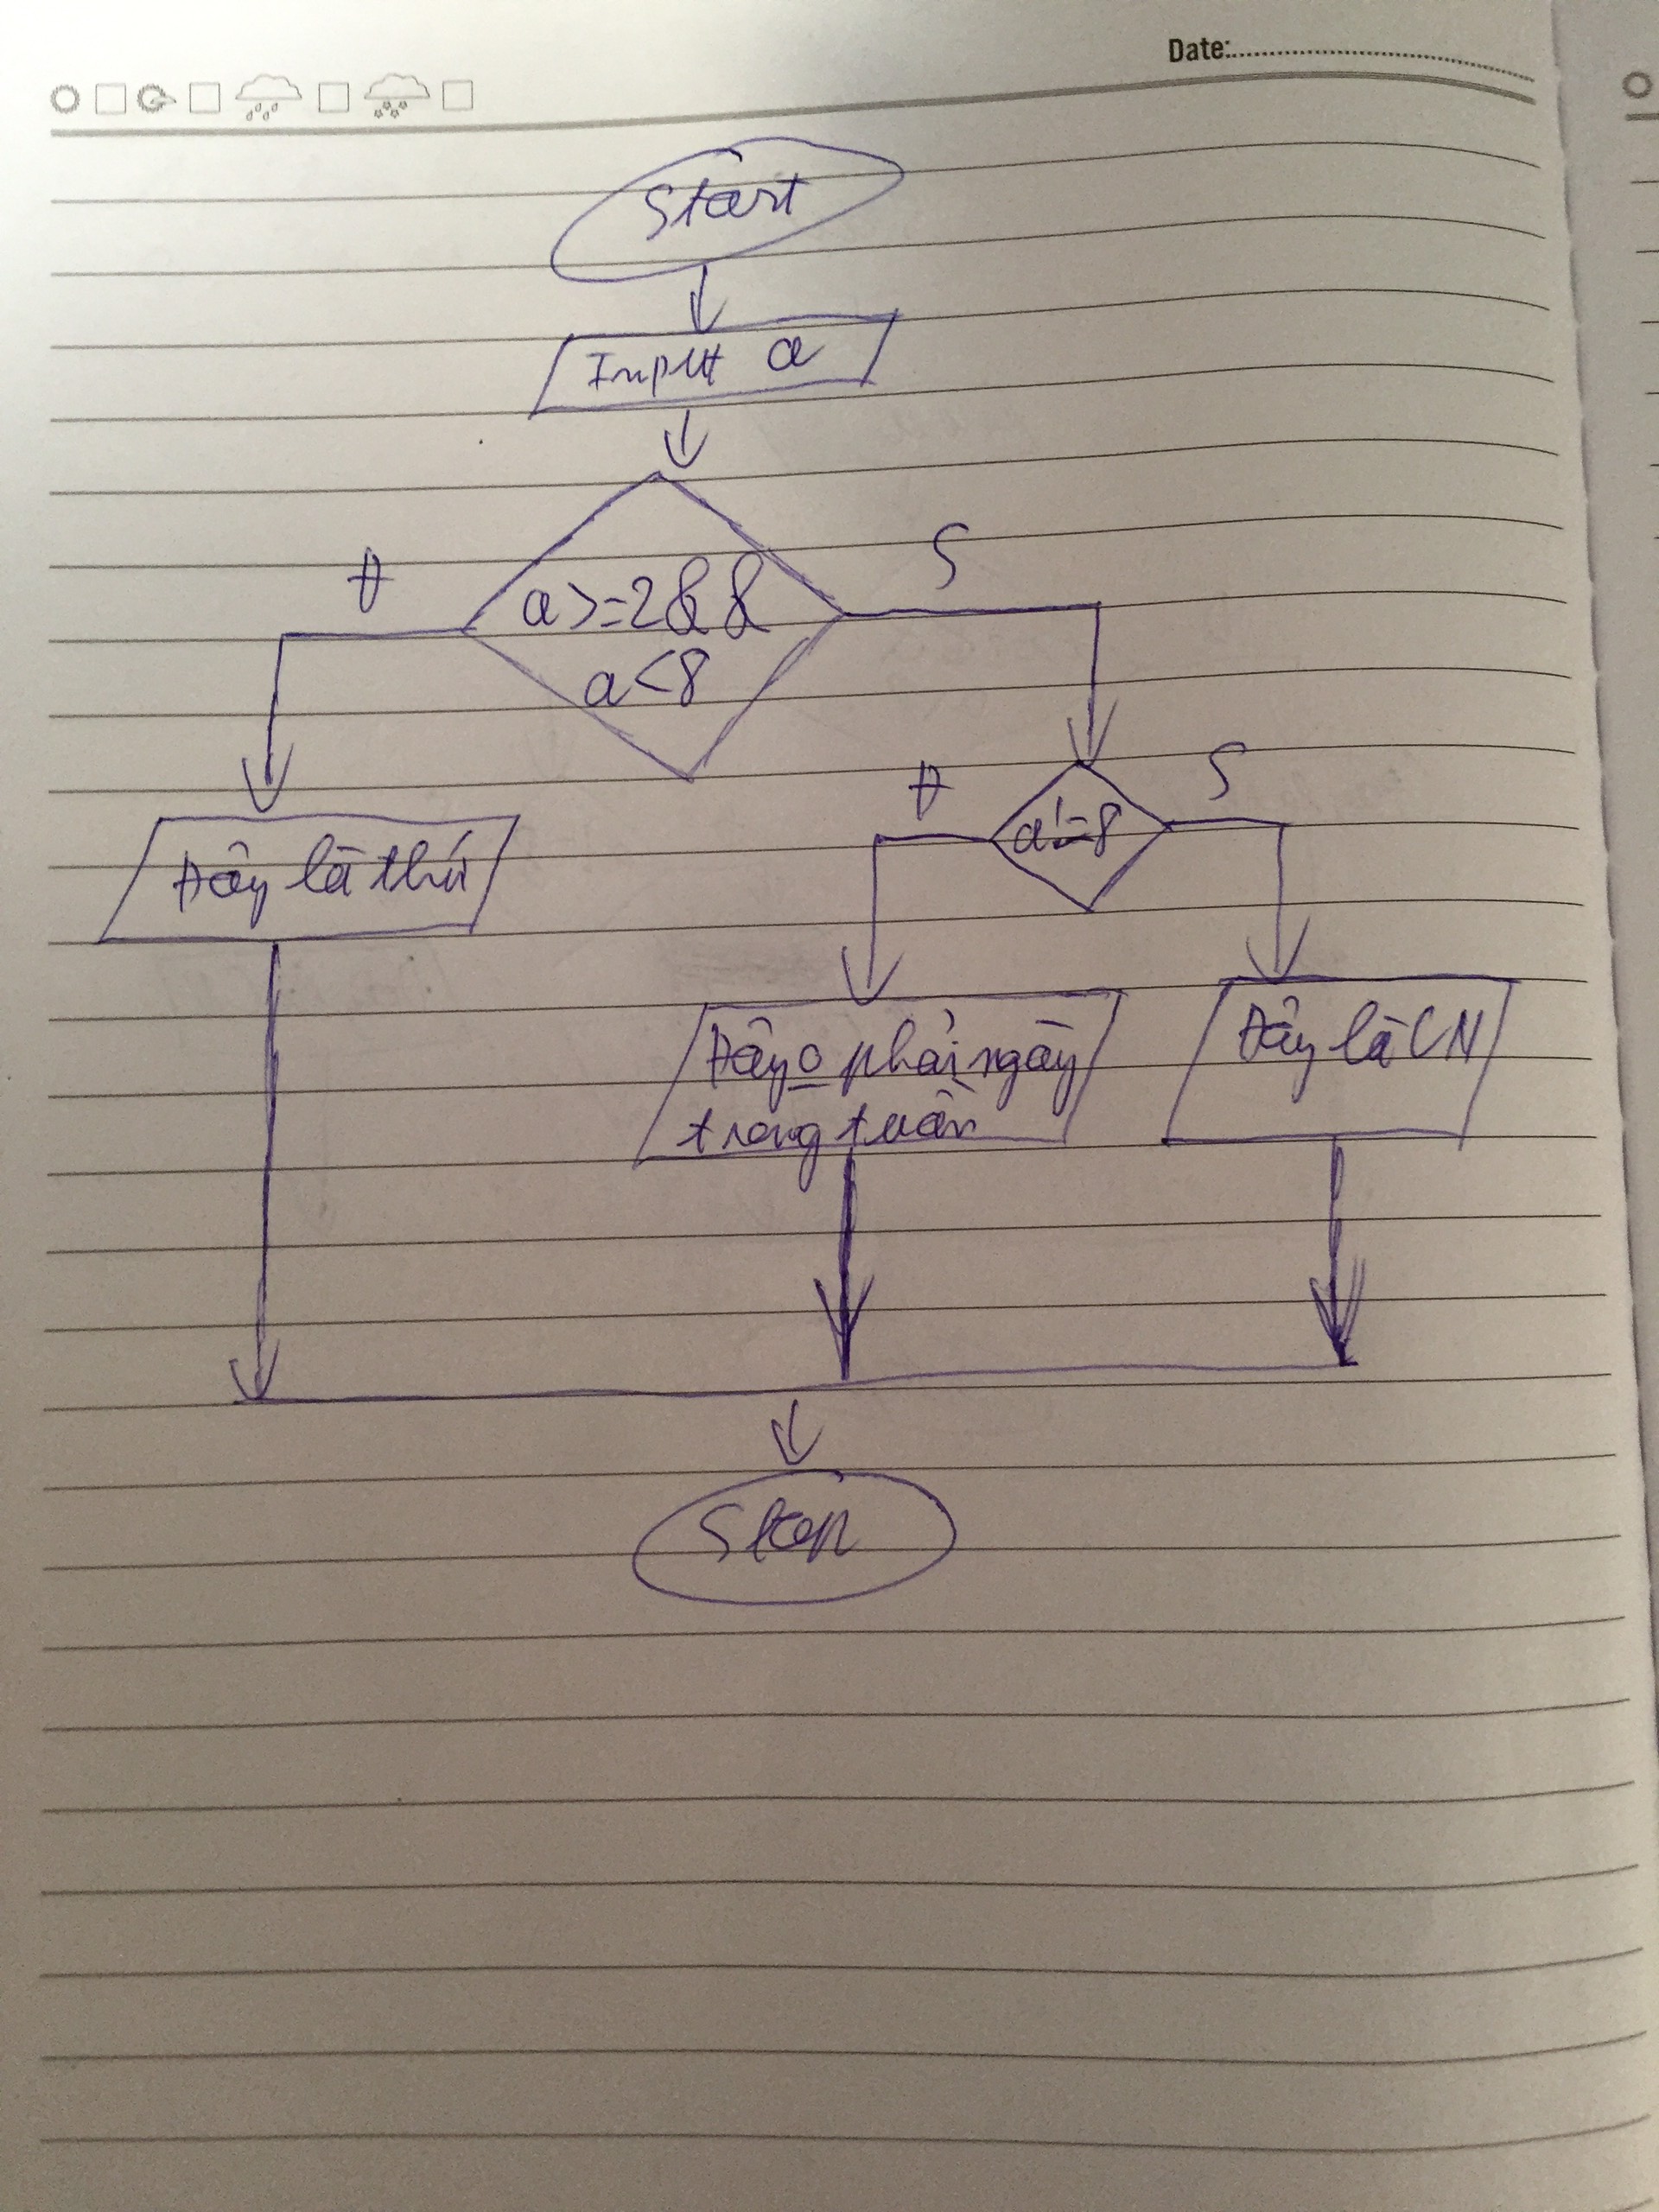 Date:
Start
Input a
Đ
S
a>=2&&
a<8
Đ
S
a!=8
Đây là thứ
Đây o phải ngày
trong tuần
Đây là CN
Stop